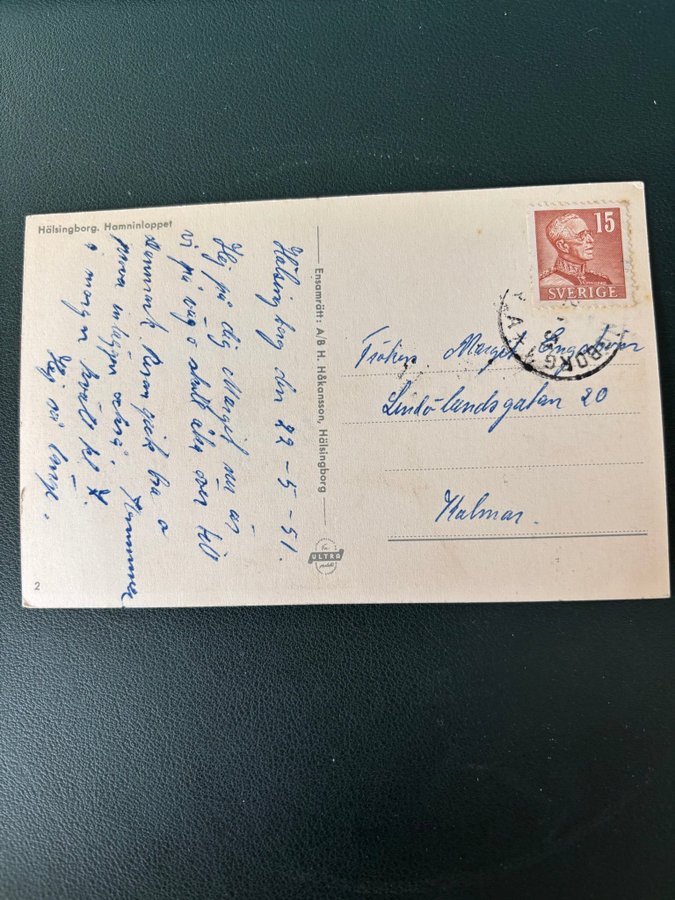 Hälsingborg. Hamninloppet
Hälsingborg den 22-5-51.
Hej på dig Margit nu är
vi på väg o skall åka över till
Danmark Resan gick bra o
inga
i morgon kväll kl 7.
Hej så länge.
Ensamrätt: A/B H. Håkansson, Hälsingborg
ULTRA
2
15
SVERIGE
BORG
Fröken Margit
Lindölandsgatan 20
Kalmar.